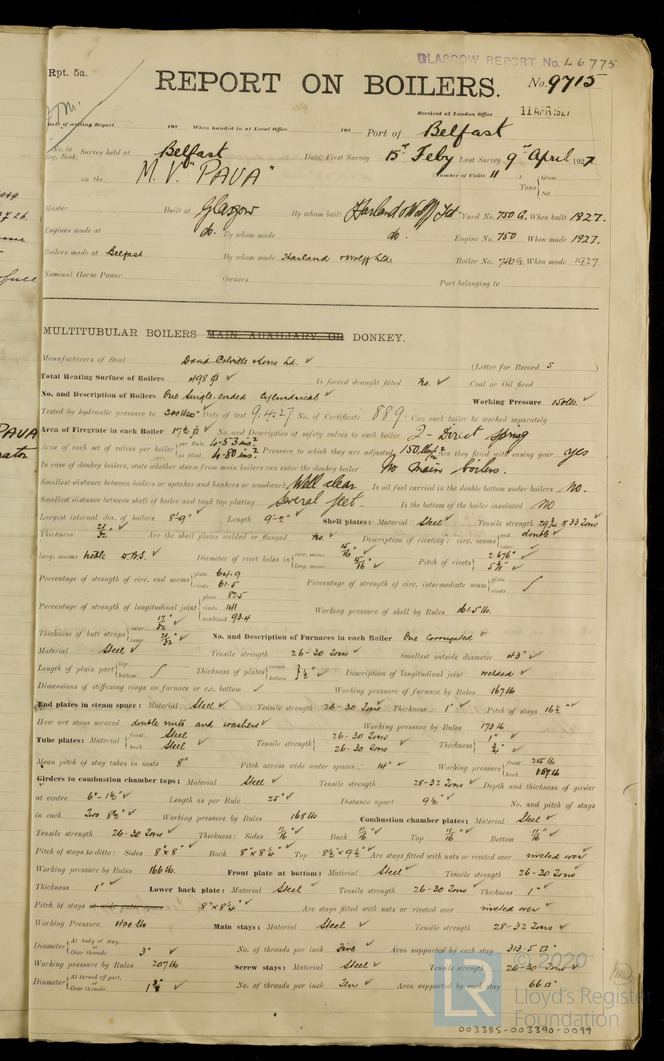 GLASGOW REPORT No. 46775
Rpt. 5a.
REPORT ON BOILERS.
No. 9715
Received at London Office 11 APR 1927
Date of writing Report 192 When handed in at Local Office 192 Port of Belfast
No. in Reg. Book. Survey held at Belfast Date, First Survey 15th Feby Last Survey 9th April 1927
on the M.V. "PAVA" (Number of Visits 11 ) Gross
Tons Net
Master Built at Glasgow By whom built Harland & Wolff Ltd Yard No. 750 G. When built 1927.
Engines made at do. By whom made do. Engine No. 750 When made 1927.
Boilers made at Belfast By whom made Harland & Wolff Ltd. Boiler No. 750G When made 1927
Nominal Horse Power Owners Port belonging to
MULTITUBULAR BOILERS MAIN, AUXILIARY OR DONKEY.
Manufacturers of Steel David Colville & Sons Ld. (Letter for Record S )
Total Heating Surface of Boilers 498 Is forced draught fitted No. Coal or Oil fired
No. and Description of Boilers One Single ended Cylindrical Working Pressure 150 lb.
Tested by hydraulic pressure to 300 lbs Date of test 9.4.27 No. of Certificate 889. Can each boiler be worked separately
Area of Firegrate in each Boiler 17½ No. and Description of safety valves to each boiler 2 - Direct Spring
Area of each set of valves per boiler per Rule 4.53 ins² as fitted 4.80 ins² Pressure to which they are adjusted 150 Are they fitted with easing gear yes
In case of donkey boilers, state whether steam from main boilers can enter the donkey boiler No Main boilers.
Smallest distance between boilers or uptakes and bunkers or woodwork Well clear Is oil fuel carried in the double bottom under boilers No.
Smallest distance between shell of boiler and tank top plating Several feet. Is the bottom of the boiler insulated No
Largest internal dia. of boilers 8'-9" Length 9'-2" Shell plates: Material Steel Tensile strength 33 Tons
Thickness 21/32" Are the shell plates welded or flanged No Description of riveting: circ. seams end double inter.
long. seams treble D.B.S. Diameter of rivet holes in circ. seams 15/16" long. seams 15/16" Pitch of rivets 2.676"
Percentage of strength of circ. end seams plate 64.9 rivets 61.5 Percentage of strength of circ. intermediate seam plate rivets
Percentage of strength of longitudinal joint plate rivets 141 combined 93.4 Working pressure of shell by Rules 161.5 lb.
Thickness of butt straps outer 17/32" inner 21/32" No. and Description of Furnaces in each Boiler One Corrugated
Material Steel Tensile strength 26-30 Tons Smallest outside diameter 43"
Length of plain part top bottom Thickness of plates crown bottom ½" Description of longitudinal joint welded
Dimensions of stiffening rings on furnace or c.c. bottom Working pressure of furnace by Rules 167 lb
End plates in steam space: Material Steel Tensile strength 26-30 Tons Thickness 1" Pitch of stays 16½"
How are stays secured double nuts and washers Working pressure by Rules 173 lb
Tube plates: Material front Steel back Steel Tensile strength 26-30 Tons 26-30 Tons Thickness 1" ¾"
Mean pitch of stay tubes in nests 8" Pitch across wide water spaces 14" Working pressure front back
Girders to combustion chamber tops: Material Steel Tensile strength 28-32 Tons Depth and thickness of girder
at centre 6" - 1½" Length as per Rule 25" Distance apart 9½" No. and pitch of stays
in each Two 8½" Working pressure by Rules 168 lb Combustion chamber plates: Material Steel
Tensile strength 26-30 Tons Thickness: Sides 11/16" Back 11/16" Top 11/16" Bottom 11/16"
Pitch of stays to ditto: Sides 8"x8" Back 8"x8¼" Top 8½"x9½" Are stays fitted with nuts or riveted over riveted over
Working pressure by Rules 166 lb. Front plate at bottom: Material Steel Tensile strength 26-30 Tons
Thickness 1" Lower back plate: Material Steel Tensile strength 26-30 Tons Thickness 1"
Pitch of stays at wide water space 8"x8¼" Are stays fitted with nuts or riveted over riveted over
Working Pressure 400 lb Main stays: Material Steel Tensile strength 28-32 Tons
Diameter At body of stay, or Over threads 3" No. of threads per inch Area supported by each stay 313.5
Working pressure by Rules 207 lb Screw stays: Material Steel Tensile strength 26-30 Tons
Diameter At turned off part, or Over threads No. of threads per inch Area supported by each stay 66
© 2020
LR
Lloyd's Register
Foundation
003385-003390-0099